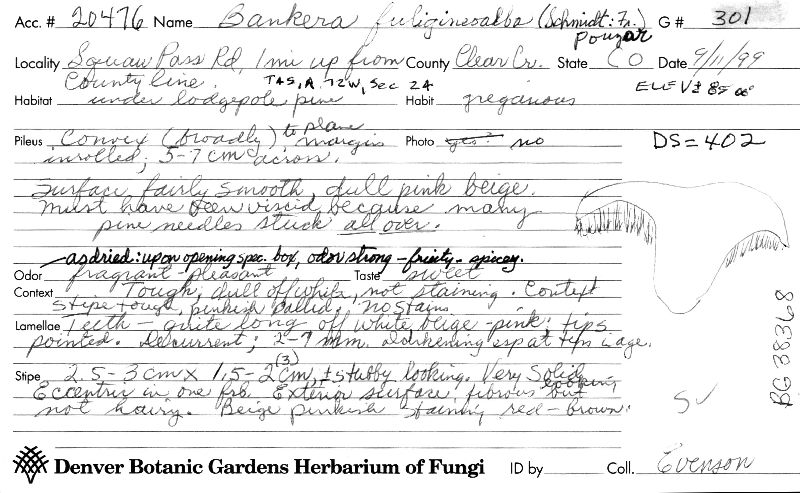 Acc. # 20476 Name Bankera fuligineoalba (Schmidt: Fr.) Pouzar G # 301
Locality Squaw Pass Rd, 1 mi up from County Clear Cr. State CO Date 9/11/99
County line. T4S, R 72W, Sec 24 ELEV±
Habitat under lodgepole pine Habit gregarious
Pileus Convex (broadly) to plane margin Photo yes? no DS=402
inrolled; 5-7 cm across.
Surface fairly smooth, dull pink beige.
Must have been viscid because many
pine needles stuck all over.
as dried: upon opening spec. box, odor strong - fruity - spicey.
Odor fragrant - pleasant Taste sweet
Context Tough, dull off white, not staining. Context
stipe tough, pinkish pallid, no stains
Lamellae Teeth - quite long off white beige-pink; tips
pointed. Decurrent; 2-7 mm. darkening esp at tips in age.
(3)
Stipe 2.5-3 cm x 1.5-2 cm, ± stubby looking. Very Solid
Eccentric in one frb. Exterior surface fibrous looking but
not hairy. Beige pinkish staining red-brown.
BG 38368
Denver Botanic Gardens Herbarium of Fungi ID by Coll. Evenson